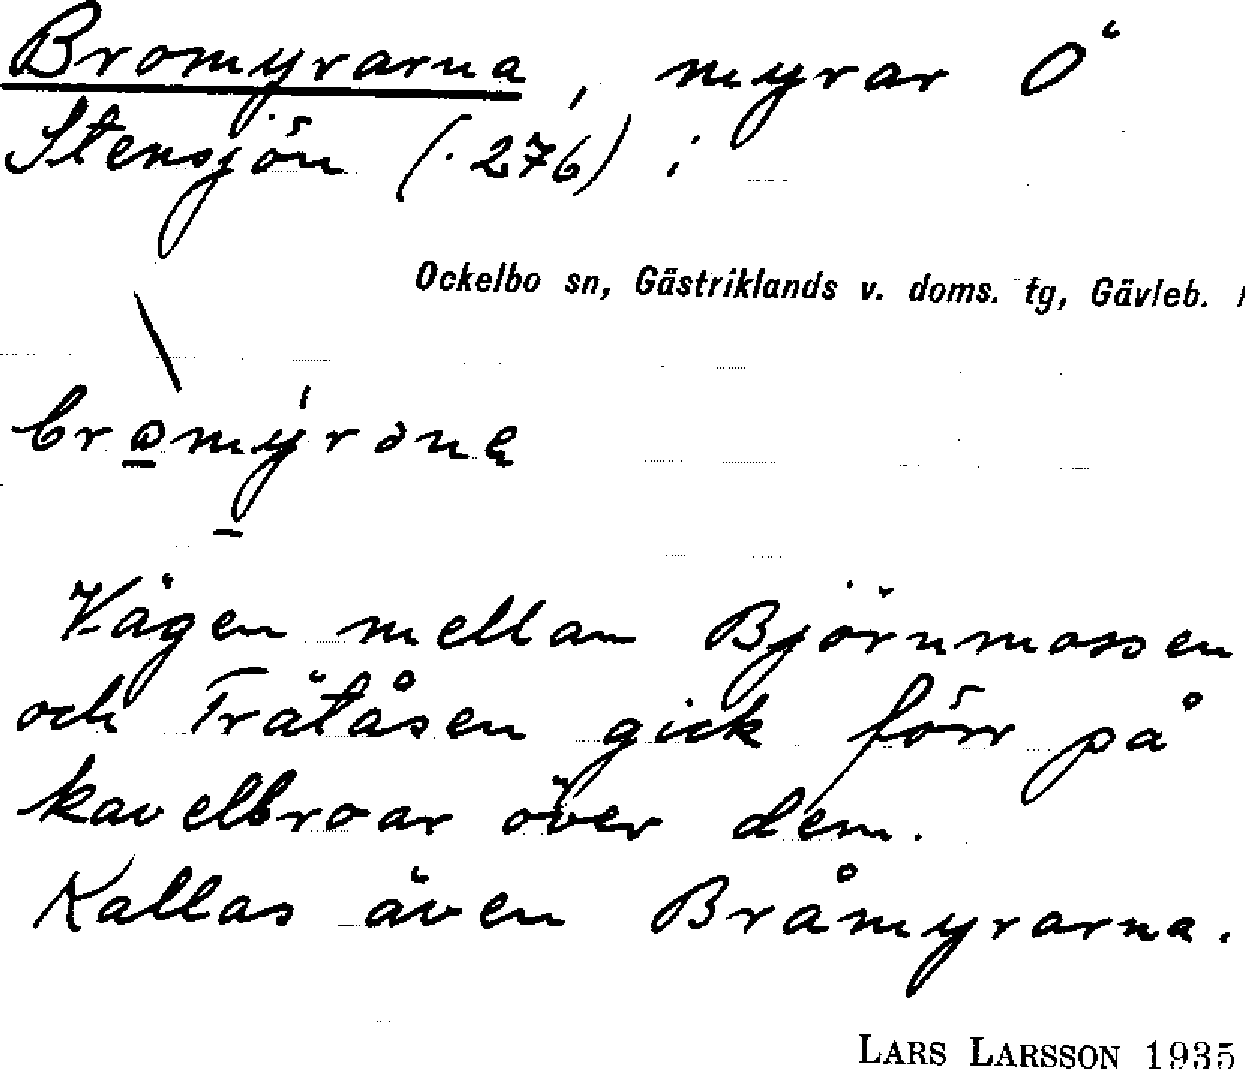 Bromyrarna, myrar Ö
Stensjön (.276) i
Ockelbo sn, Gästriklands v. doms. tg, Gävleb.
Vägen mellan Björnmossen
och Trätåsen gick förr på
kavelbroar över dem.
Kallas även Bråmyrarna.
LARS LARSSON 1935